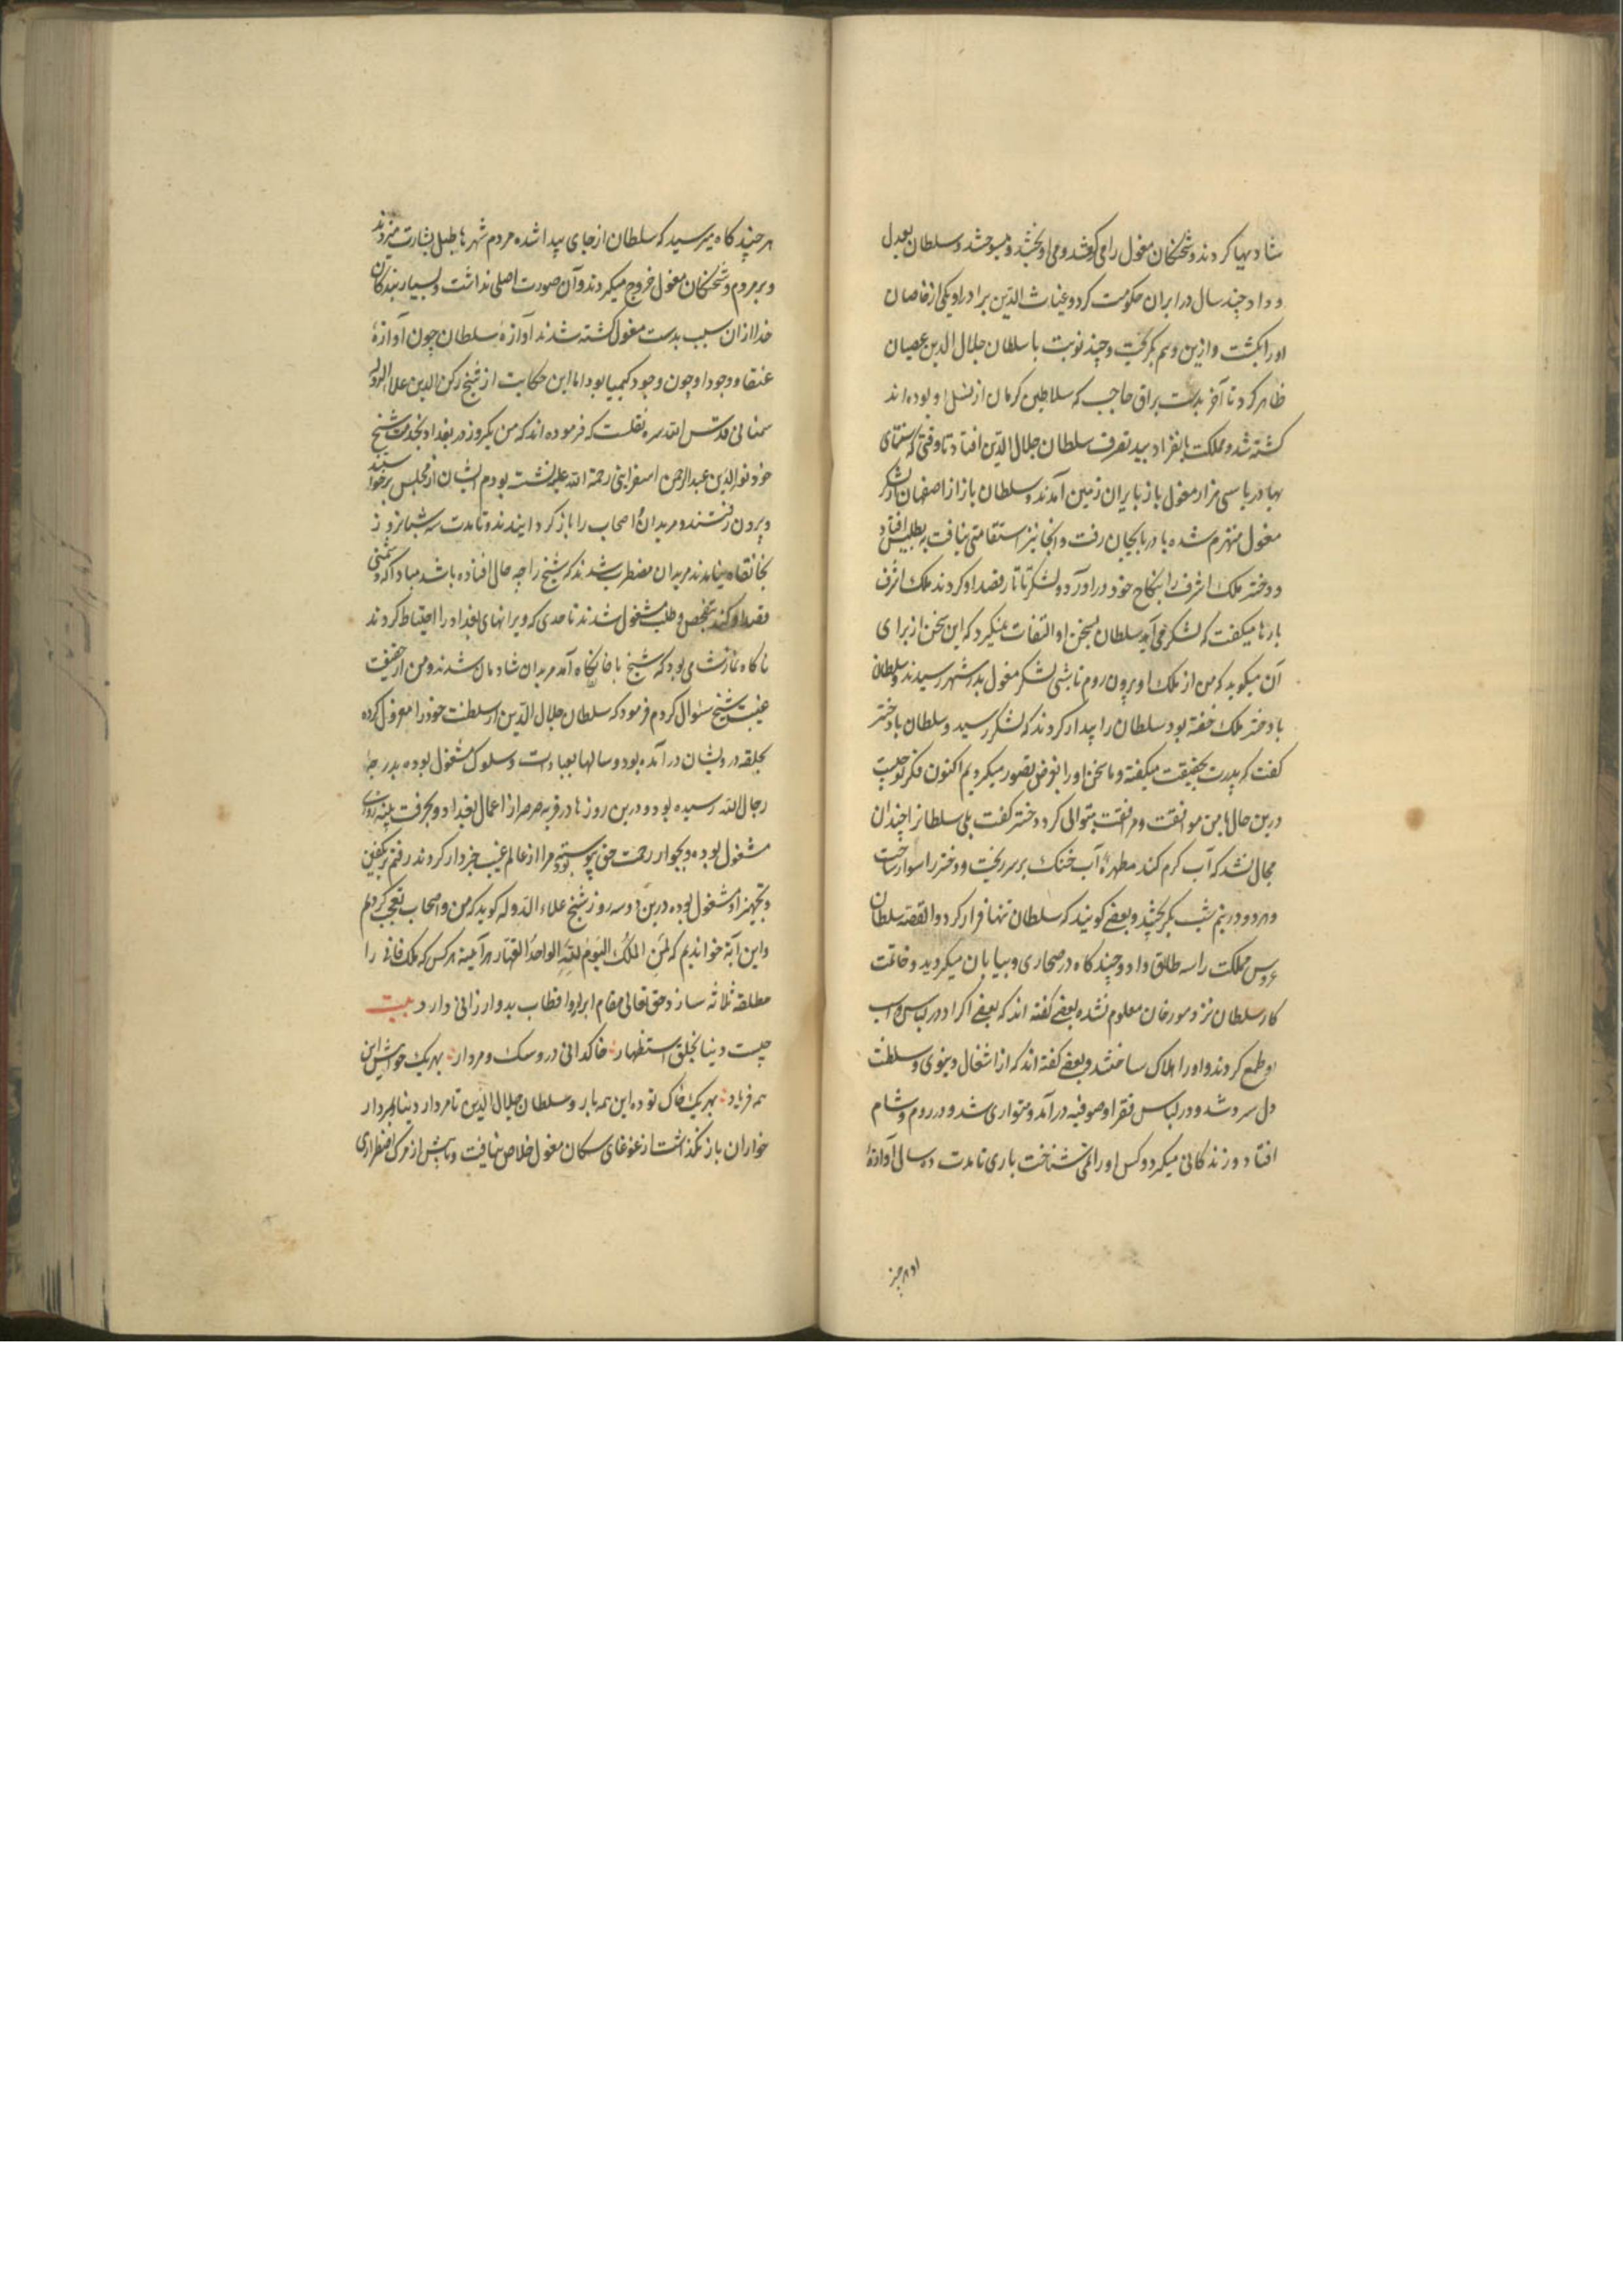 شادیها کردند و شحنکان مغول را می کوفتند و می آویختند و میسوختند و سلطان بعدل
و داد چند سال در ایران حکومت کرد و غیاث الدین برادر او یکی از خاصان
او را بکشت و ازین وهم بکریخت و چند نوبت با سلطان جلال الدین عصیان
ظاهر کرد تا آخر بدست براق حاجب که سلاطین کرمان از نسل او بوده اند
کشته شد و مملکت بانفراد بید تصرف سلطان جلال الدین افتاد تا وقتی که سنتای
بهادر با سی هزار مغول باز بایران زمین آمدند و سلطان باز از اصفهان از لشکر
مغول منهزم شده بآدربایجان رفت و آنجا نیز استقامتی نیافت به بطلیس افتاد
و دختر ملک اشرف را بنکاح خود در آورد و لشکر تاتار قصد او کردند ملک اشرف
بارها میکفت که لشکر می آید سلطان بسخن او التفات نمیکرد که این سخن از برای
آن میکوید که من از ملک او بیرون روم تا شبی لشکر مغول بدر شهر رسیدند و سلطان
با دختر ملک خفته بود سلطان را بیدار کردند که لشکر رسید و سلطان با دختر
کفت که پدرت بحقیقت میکفته و ما سخن او را بغرض تصور میکردیم اکنون فکر تو چیست
درین حال با من موافقت و مرافقت میتوانی کرد دختر کفت بلی سلطانرا چندان
مجال نشد که آب کرم کند مطهره آب خنک بر سر ریخت و دختر را سوار ساخت
و هر دو در نیم شب بکریختند و بعضی کویند که سلطان تنها فرار کرد و القصه سلطان
عروس مملکت را سه طلاق داد و چند کاه در صحاری و بیابان میکردید و خاتمت
کار سلطان نزد مورخان معلوم نشده بعضی کفته اند که بعضی اکراد در لباس و اسب
او طمع کردند و او را هلاک ساختند و بعضی کفته اند که از اشغال دنیوی و سلطنت
دل سرد شد و در لباس فقرا و صوفیه در آمد و متواری شد و در روم و شام
افتاد و زندکانی میکرد و کس او را نمی شناخت باری تا مدت ده سال آوازهٔ
هر چند کاه میرسید که سلطان از جای پیدا شده مردم شهرها طبل بشارت میزدند
و بر مردم و شحنکان مغول خروج میکردند و آن صورت اصلی نداشت و بسیار بندکان
خدا از آن سبب بدست مغول کشته شدند آوازهٔ سلطان چون آوازهٔ
عنقا و وجود او چون وجود کیمیا بود اما این حکایت از شیخ رکن الدین علاء الدوله
سمنانی قدس الله سره نقلست که فرموده اند که من یکروز در بغداد بخدمت شیخ
خود نور الدین عبد الرحمن اسفراینی رحمة الله علیه نشسته بودم ایشان از مجلس برخواستند
و بیرون رفتند و مریدان و اصحاب را باز کردانیدند و تا مدت سه شبانروز
بخانقاه نیامدند مریدان مضطرب شدند که شیخ را چه حال افتاده باشد مبادا که دشمنی
قصد او کند بتفحص و طلب مشغول شدند تا حدی که ویرانهای بغداد را احتیاط کردند
ناکاه نماز شامی بود که شیخ با خانکاه آمد مریدان شادمان شدند و من از حقیقت
غیبت شیخ سئوال کردم فرمود که سلطان جلال الدین از سلطنت خود را معزول کرده
بحلقه درویشان در آمده بود و سالها بعبادت و سلوک مشغول بوده بدرجهٔ
رجال الله رسیده بود و درین روزها در قریه صرصر از اعمال بغداد و بحرفت پینه دوزی
مشغول بوده و بجوار رحمت حق پیوسته مرا از عالم غیب خبردار کردند رفتم و بتکفین
و تجهیز او مشغول بوده درین دو سه روز شیخ علاء الدوله کوید که من و اصحاب تعجب کردیم
و این آیة خواندیم که لمن الملک الیوم لله الواحد القهار هر آینه هر کس که ملک فانی را
مطلقه ثلاثه سازد حق تعالی مقام ابرار و اقطاب بدو ارزانی دارد بیت
چیست دنیا بخلق استظهار خاکدانی درو سک و مردار بهر یک خواستن این
همه فریاد بهر یک خاک توده این همه بار و سلطان جلال الدین تا مردار دنیا بمردار
خواران باز نکذاشت از غوغای سکان مغول خلاص نیافت و تا پیش از مرک اضطراری